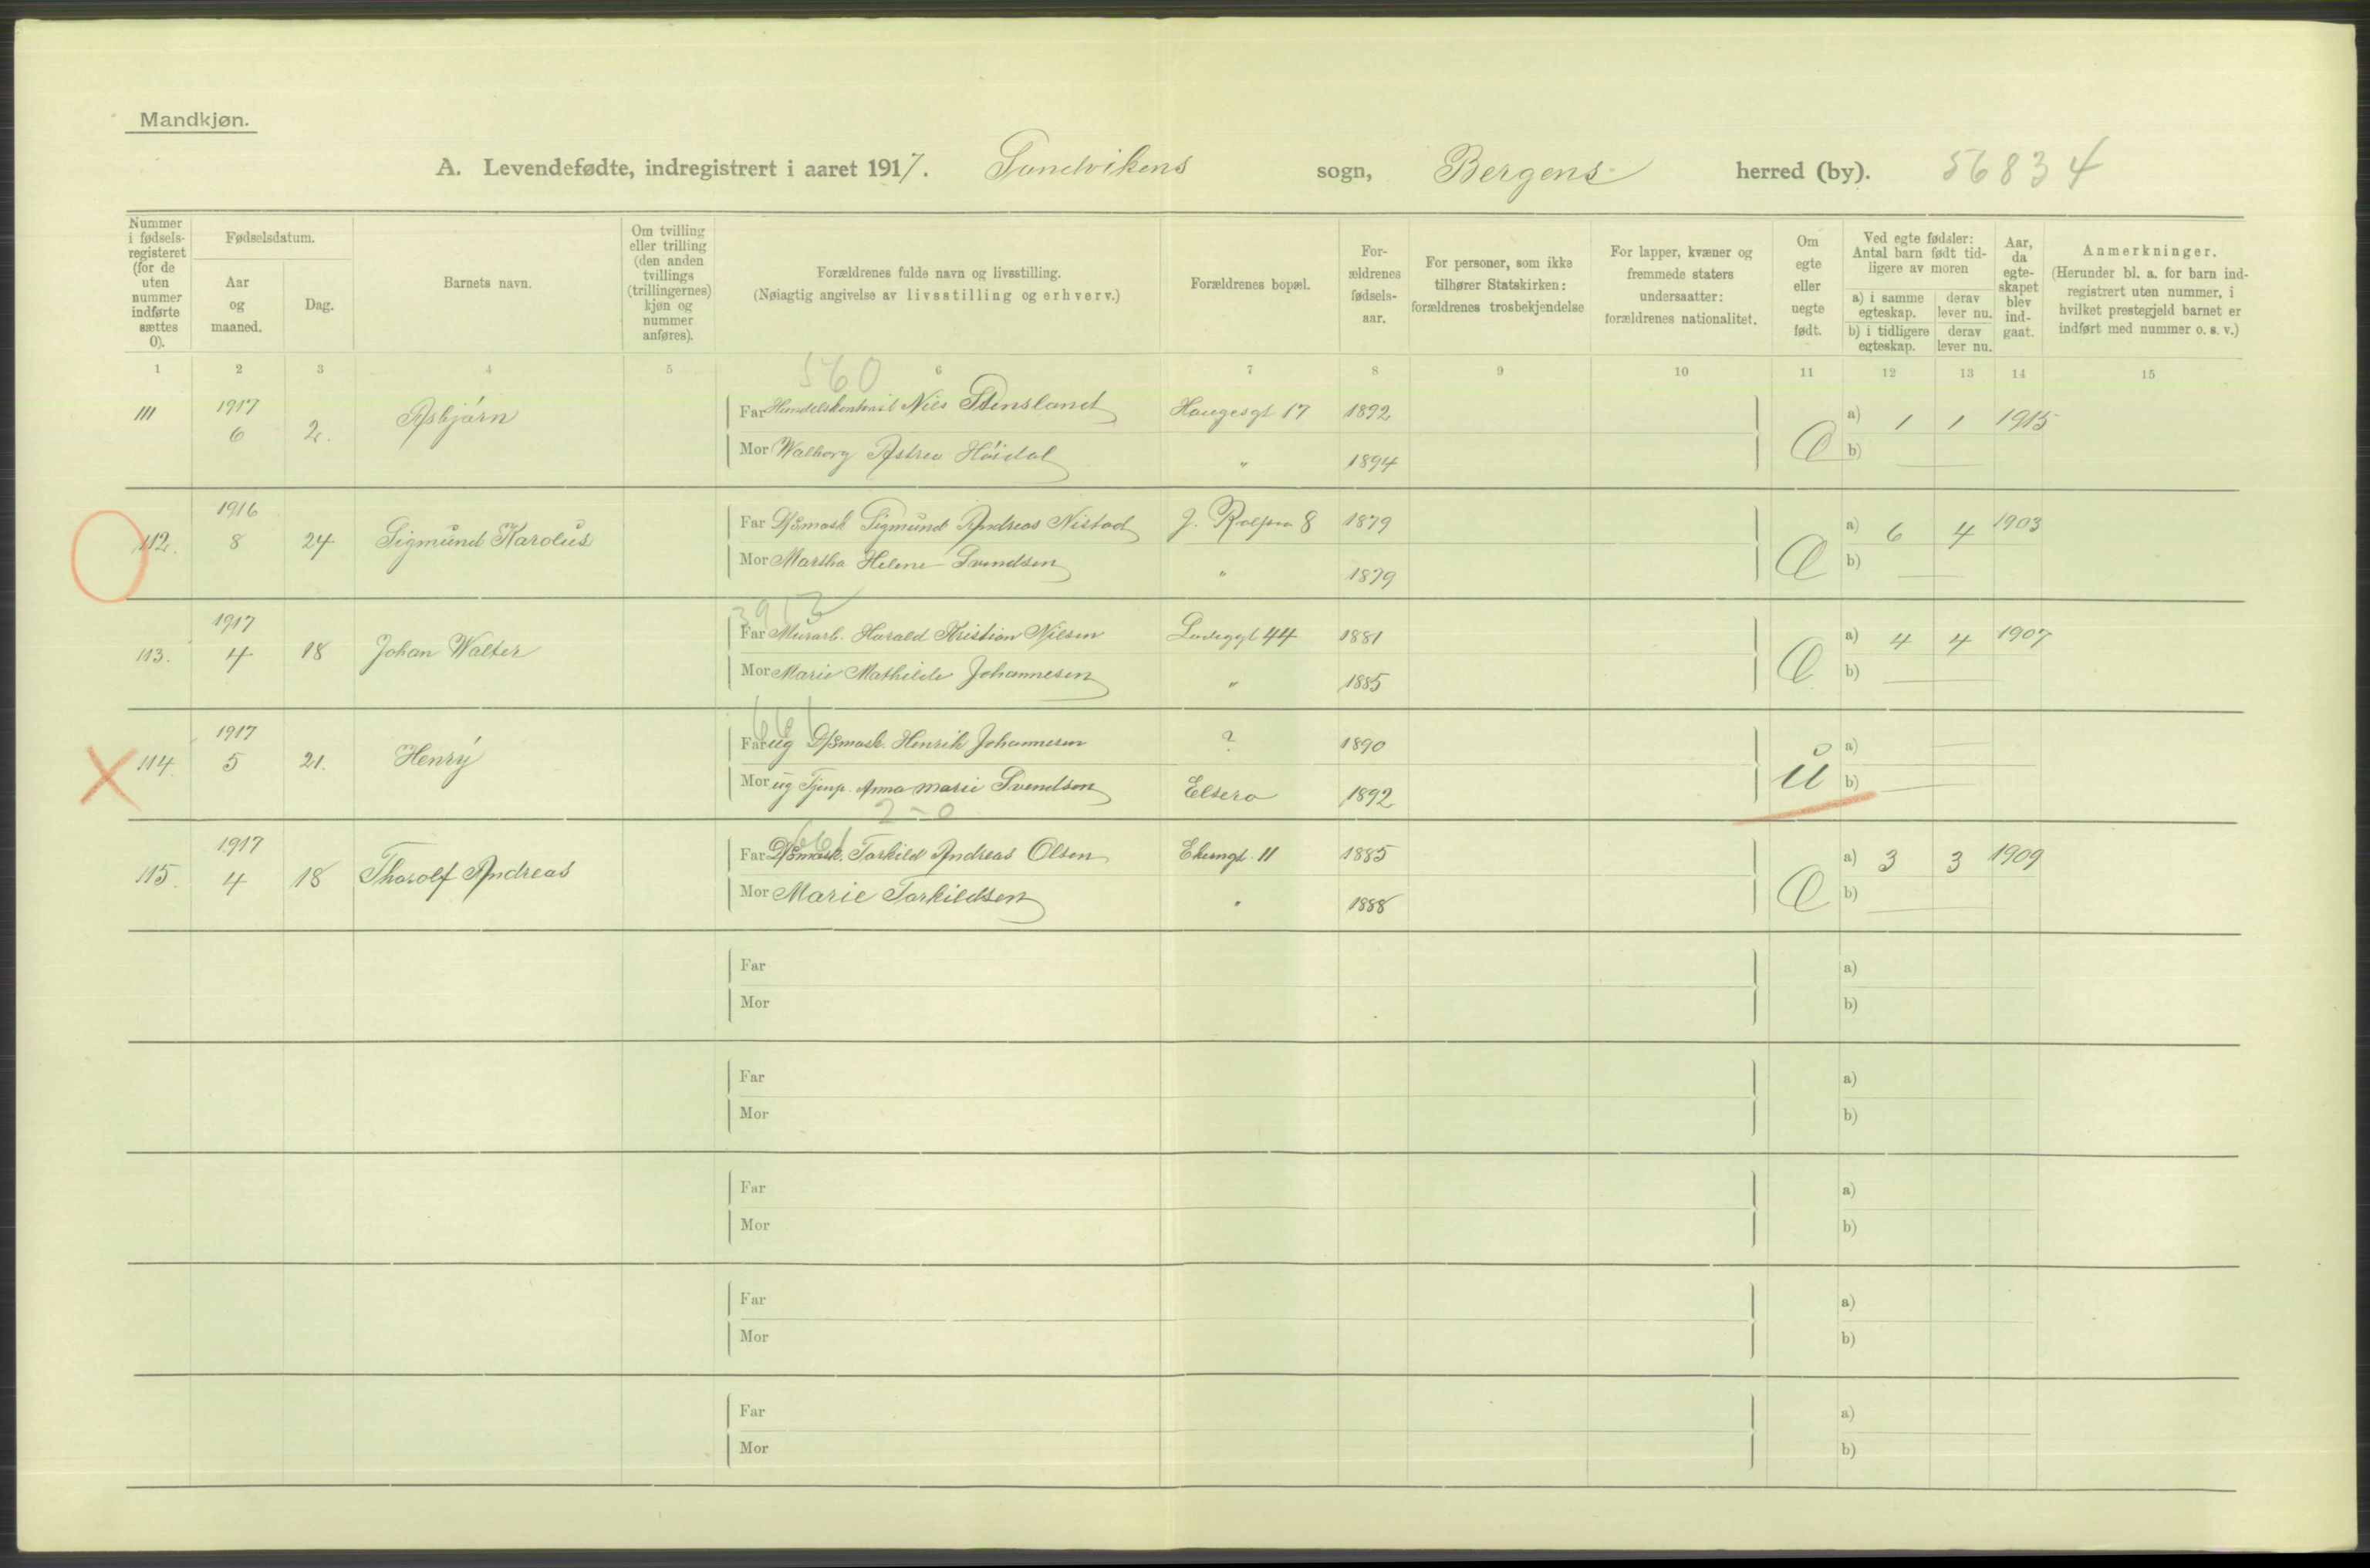 Mandkjøn.
A. Levendefødte, indregistrert i aaret 1917. Sandvikens sogn, Bergens herred (by). 56834
Nummer i fødsels-registeret (for de uten nummer indførte sættes 0).
Fødselsdatum.
Aar og maaned.
Dag.
Barnets navn.
Om tvilling eller trilling (den anden tvillings (trillingernes) kjøn og nummer anføres).
Forældrenes fulde navn og livsstilling.
(Nøiagtig angivelse av livsstilling og erhverv.)
Forældrenes bopæl.
For-ældrenes fødsels-aar.
For personer, som ikke tilhører Statskirken: forældrenes trosbekjendelse
For lapper, kvæner og fremmede staters undersaatter: forældrenes nationalitet.
Om egte eller uegte født.
Ved egte fødsler: Antal barn født tid-ligere av moren
a) i samme egteskap. derav lever nu.
b) i tidligere egteskap. derav lever nu.
Aar, da egte-skapet blev ind-gaat.
Anmerkninger.
(Herunder bl. a. for barn ind-registrert uten nummer, i hvilket prestegjeld barnet er indført med nummer o. s. v.)
1 2 3 4 5 6 7 8 9 10 11 12 13 14 15
560
111 1917 6 2. Asbjörn
Far Nils Stensland Haugesgt 17 1892
Mor Walborg Astrea Höidal " 1894
a) 1 1 1915
b)
112. 1916 8 24 Sigmund Karolus
Far D/Smask Sigmund Andreas Nistad J. Rolfsen 8 1879
Mor Martha Helene Svendsen " 1879
a) 6 4 1903
b)
113. 1917 4 18 Johan Walter
Far Murarb. Harald Kristian Nilsen Ladeggt 44 1881
Mor Marie Mathilde Johannesen " 1885
a) 4 4 1907
b)
661
114 1917 5 21. Henry
Far ug D/Smask. Henrik Johannesen ? 1890
Mor ug Tjenp. Anna Marie Svendsen Elsero 1892
u a)
b)
2-0
661
115. 1917 4 18 Thorolf Andreas
Far D/Smask. Torkild Andreas Olsen Ekerngt. 11 1885
Mor Marie Torkildsen " 1888
a) 3 3 1909
b)
Far a)
Mor b)
Far a)
Mor b)
Far a)
Mor b)
Far a)
Mor b)
Far a)
Mor b)